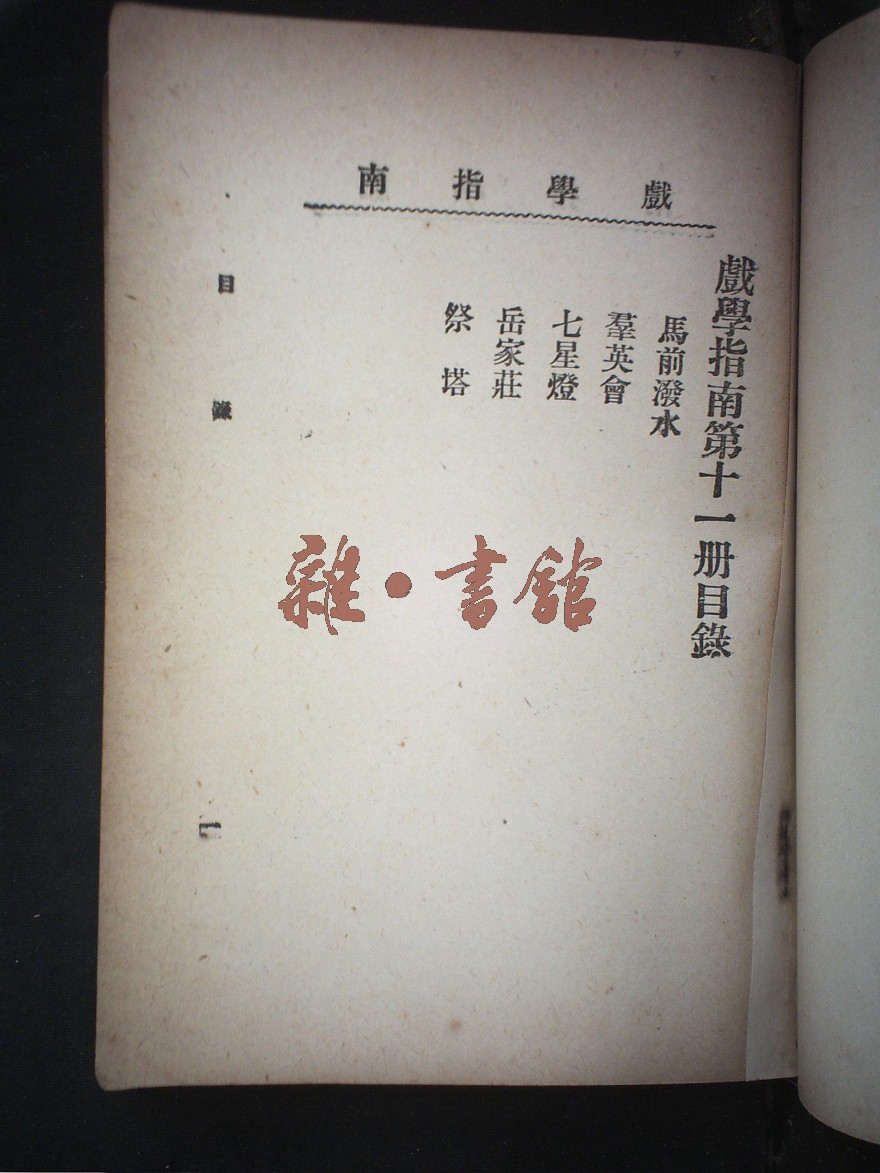 戲學指南
戲學指南第十一册目錄
馬前潑水
羣英會
七星燈
岳家莊
祭塔
目錄
雜·書館